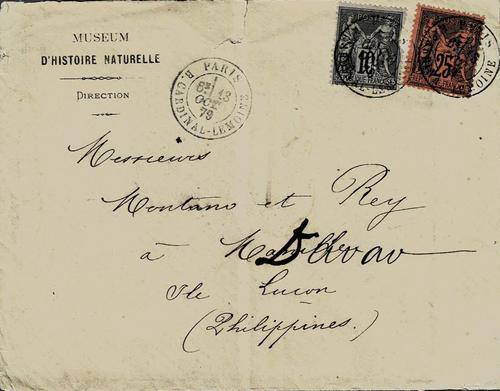 MUSEUM
D'HISTOIRE NATURELLE
DIRECTION
PARIS
8E 13
OCT.
79
R. CARDINAL-LEMOINE
POSTES
10
25
Messieurs
Montano et Rey
à Davao
Ile Luçon
(Philippines.)